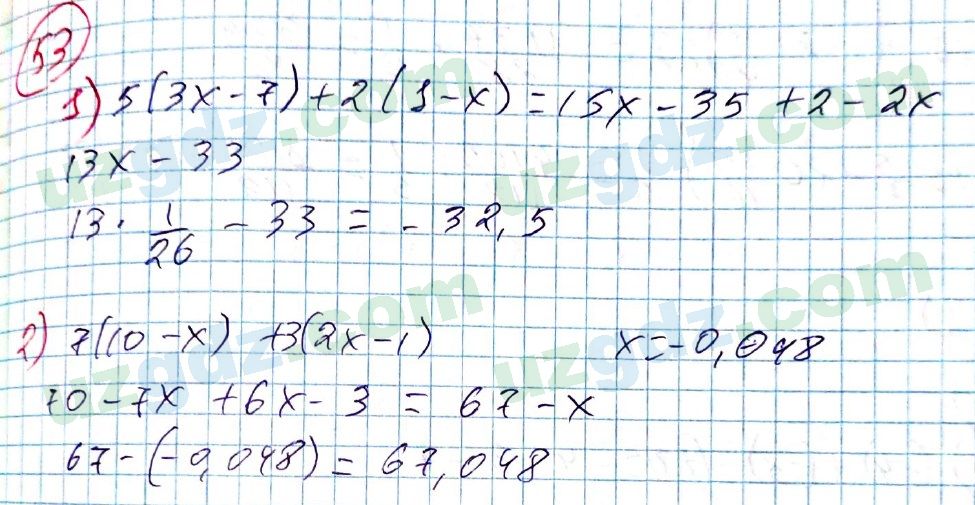 53
1) 5(3x - 7) + 2(1 - x) = 15x - 35 + 2 - 2x
13x - 33
13 · 1/26 - 33 = - 32,5
2) 7(10 - x) + 3(2x - 1) x = -0,048
70 - 7x + 6x - 3 = 67 - x
67 - (-0,048) = 67,048
uzgdz.com
uzgdz.com
uzgdz.com
uzgdz.com